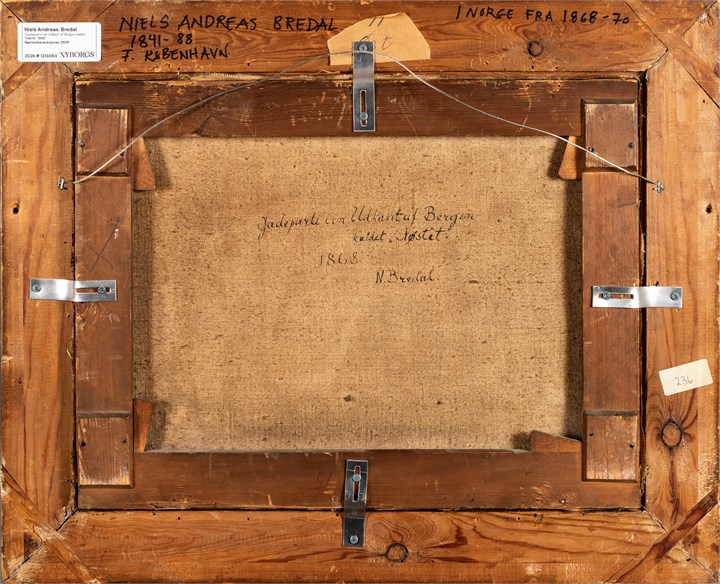 Niels Andreas Bredal
2026 # 1214064 NYBORGS
NIELS ANDREAS BREDAL
1841-88
F. KØBENHAVN
I NORGE FRA 1868-70
Gadeparti i en Udkant af Bergen
kaldet "Nøstet".
1868
N. Bredal.
236